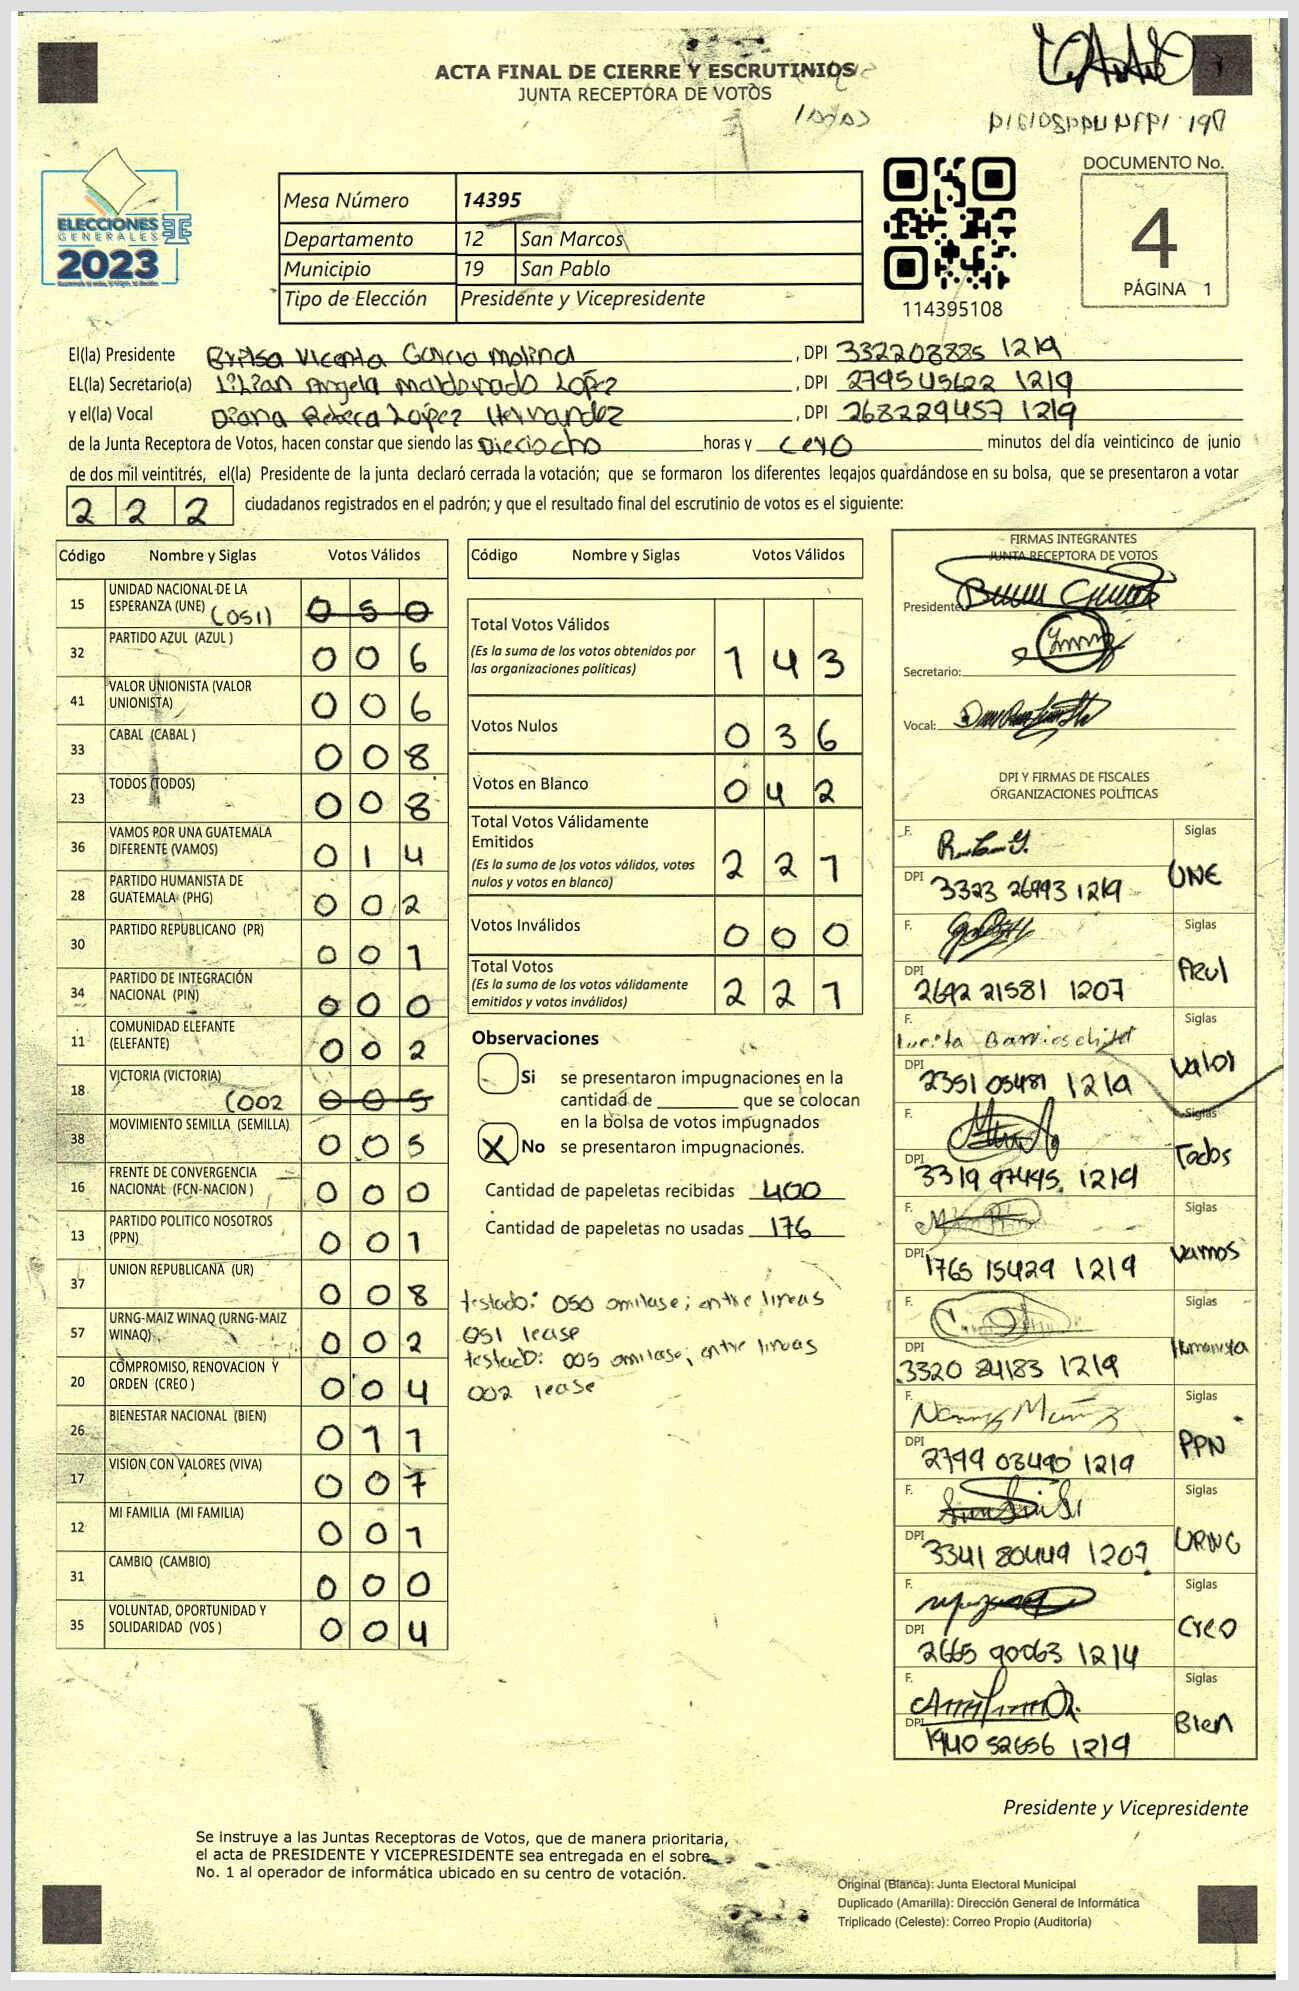 ACTA FINAL DE CIERRE Y ESCRUTINIOS
JUNTA RECEPTORA DE VOTOS
DOCUMENTO No.
4
PÁGINA 1
ELECCIONES
GENERALES
2023
Mesa Número 14395
Departamento 12 San Marcos
Municipio 19 San Pablo
Tipo de Elección Presidente y Vicepresidente
114395108
El(la) Presidente Vicenta Garcia Molina, DPI 332208885 1219
EL(la) Secretario(a) Lilian Angela Maldonado López, DPI 2795 45622 1219
y el(la) Vocal Diana Rebeca López Hernandez, DPI 268229457 1219
de la Junta Receptora de Votos, hacen constar que siendo las Dieciocho horas y cero minutos del día veinticinco de junio
de dos mil veintitrés, el(la) Presidente de la junta declaró cerrada la votación; que se formaron los diferentes legajos guardándose en su bolsa, que se presentaron a votar
222 ciudadanos registrados en el padrón; y que el resultado final del escrutinio de votos es el siguiente:
Código Nombre y Siglas Votos Válidos
15 UNIDAD NACIONAL DE LA ESPERANZA (UNE) (051) 050
32 PARTIDO AZUL (AZUL ) 006
41 VALOR UNIONISTA (VALOR UNIONISTA) 006
33 CABAL (CABAL ) 008
23 TODOS (TODOS) 008
36 VAMOS POR UNA GUATEMALA DIFERENTE (VAMOS) 014
28 PARTIDO HUMANISTA DE GUATEMALA (PHG) 002
30 PARTIDO REPUBLICANO (PR) 001
34 PARTIDO DE INTEGRACIÓN NACIONAL (PIN) 000
11 COMUNIDAD ELEFANTE (ELEFANTE) 002
18 VICTORIA (VICTORIA) (002 005
38 MOVIMIENTO SEMILLA (SEMILLA) 005
16 FRENTE DE CONVERGENCIA NACIONAL (FCN-NACION ) 000
13 PARTIDO POLITICO NOSOTROS (PPN) 001
37 UNION REPUBLICANA (UR) 008
57 URNG-MAIZ WINAQ (URNG-MAIZ WINAQ) 002
20 COMPROMISO, RENOVACION Y ORDEN (CREO ) 004
26 BIENESTAR NACIONAL (BIEN) 011
17 VISION CON VALORES (VIVA) 007
12 MI FAMILIA (MI FAMILIA) 001
31 CAMBIO (CAMBIO) 000
35 VOLUNTAD, OPORTUNIDAD Y SOLIDARIDAD (VOS ) 004
Código Nombre y Siglas Votos Válidos
Total Votos Válidos
(Es la suma de los votos obtenidos por
las organizaciones políticas) 143
Votos Nulos 036
Votos en Blanco 042
Total Votos Válidamente
Emitidos
(Es la suma de los votos válidos, votos
nulos y votos en blanco) 221
Votos Inválidos 000
Total Votos
(Es la suma de los votos válidamente
emitidos y votos inválidos) 221
Observaciones
Si se presentaron impugnaciones en la
cantidad de ________ que se colocan
en la bolsa de votos impugnados
X No se presentaron impugnaciones.
Cantidad de papeletas recibidas 400
Cantidad de papeletas no usadas 176
testado: 050 omitase; entre lineas
051 lease
testado: 005 omitase; entre lineas
002 lease
FIRMAS INTEGRANTES
JUNTA RECEPTORA DE VOTOS
Presidente:
Secretario:
Vocal:
DPI Y FIRMAS DE FISCALES
ORGANIZACIONES POLÍTICAS
F. Siglas
DPI 3323 26993 1219 UNE
F. Siglas
DPI 2692 21581 1207 Azul
F. Siglas
DPI 2351 05481 1219 Valor
F. Siglas
DPI 3319 97495 1219 Todos
F. Siglas
DPI 1765 15429 1219 Vamos
F. Siglas
DPI 3320 84183 1219 Humanista
F. Nancy Muñoz Siglas
DPI 2799 03490 1219 PPN
F. Siglas
DPI 3341 80449 1207 URNG
F. Siglas
DPI 2665 90063 1214 Creo
F. Siglas
DPI 1940 52656 1219 Bien
Presidente y Vicepresidente
Se instruye a las Juntas Receptoras de Votos, que de manera prioritaria,
el acta de PRESIDENTE Y VICEPRESIDENTE sea entregada en el sobre
No. 1 al operador de informática ubicado en su centro de votación.
Original (Blanca): Junta Electoral Municipal
Duplicado (Amarilla): Dirección General de Informática
Triplicado (Celeste): Correo Propio (Auditoría)